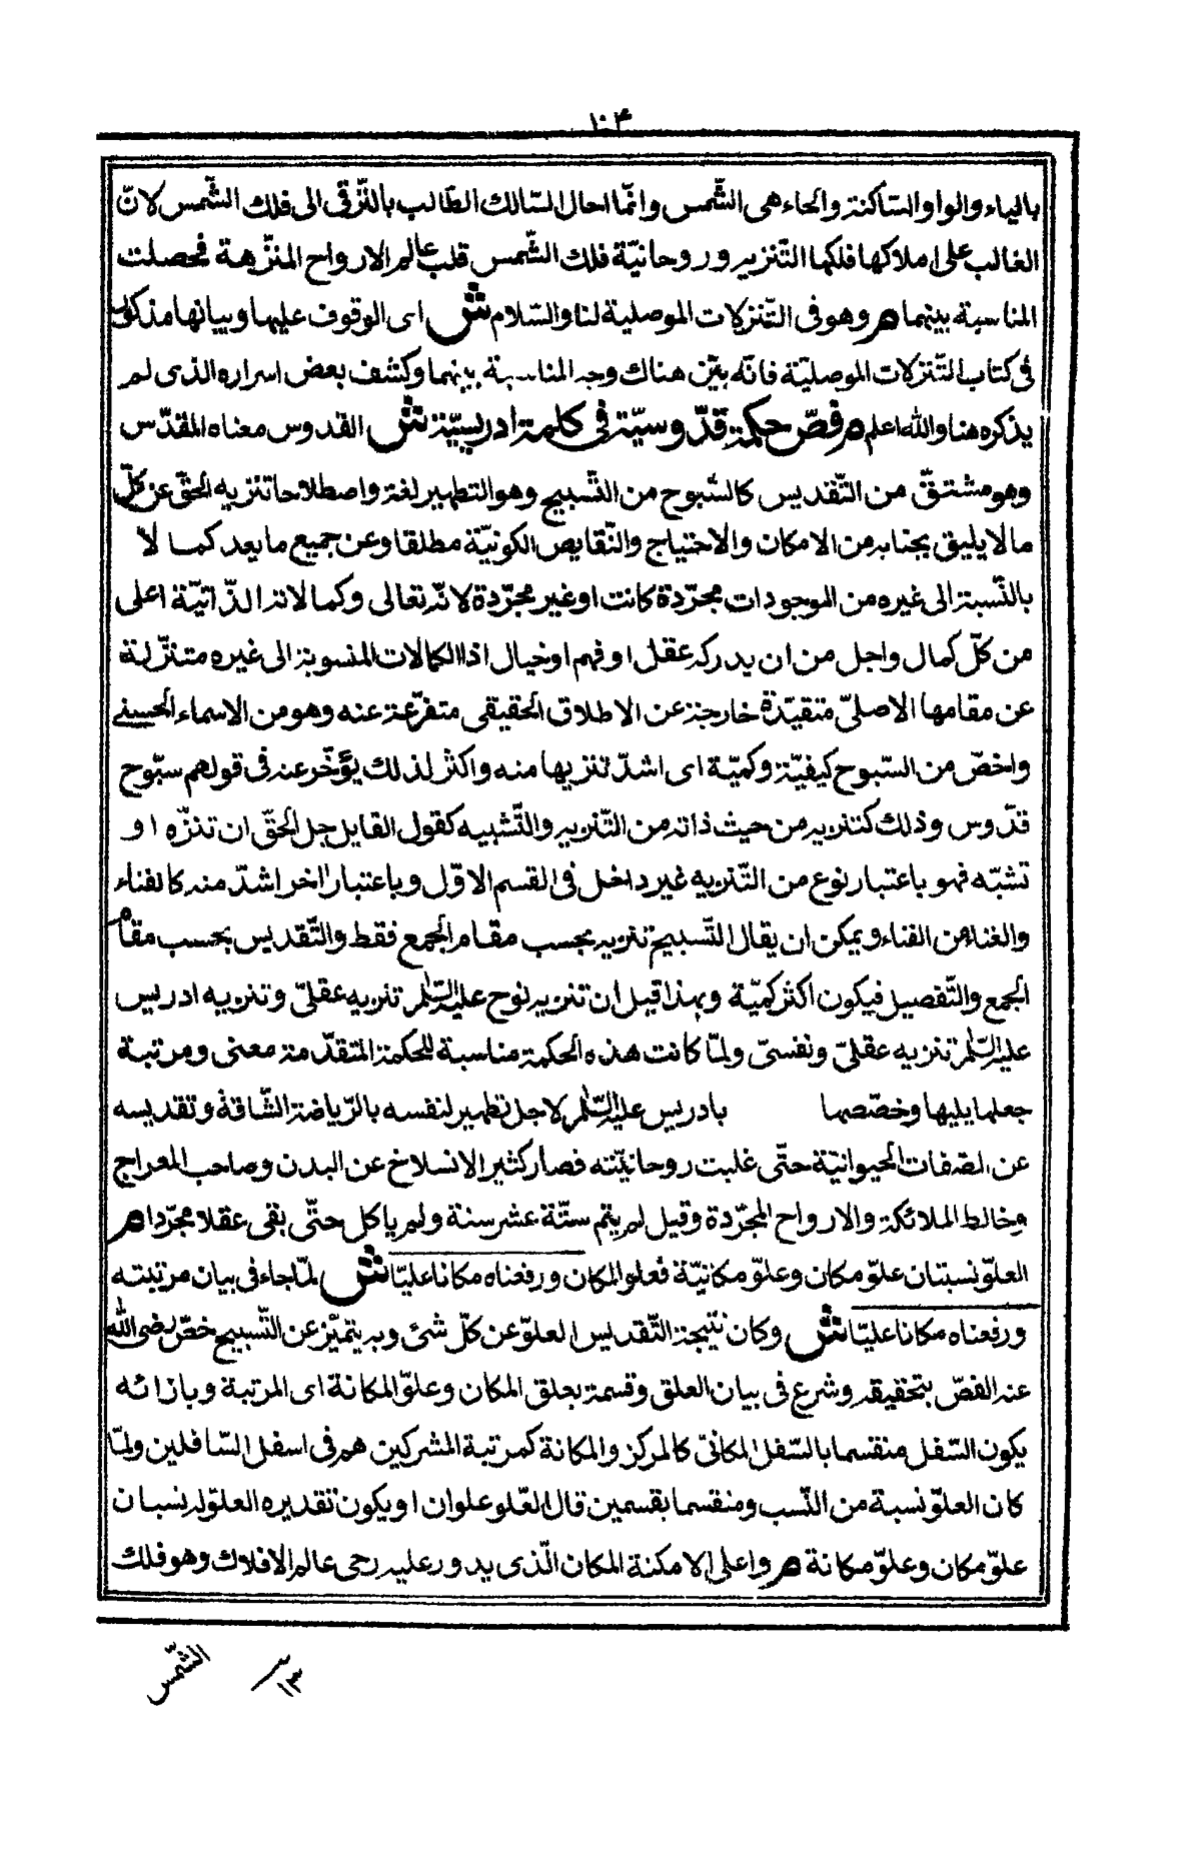 ١٠٣
بالياء والواو الساكنة والحاء هى الشّمس وانّما احال السّالك الطّالب بالتّرقى الى فلك الشّمس لانّ
الغالب على املاكها فلكها التّنزيه وروحانيّة فلك الشّمس قلب عالم الارواح المنزّهة فحصلت
المناسبة بينهما م وهو فى التّنزلات الموصلية لنا والسّلام ش اى الوقوف عليها وبيانها مذكور
فى كتاب التّنزلات الموصليّة فانّه بيّن هناك وجه المناسبة بينهما وكشف بعض اسراره الذى لم
يذكره هنا والله اعلم م فصّ حكمة قدّوسيّة فى كلمة ادريسيّة ش القدوس معناه المقدّس
وهو مشتقّ من التّقديس كالسّبوح من التّسبيح وهو التطهير لغة واصطلاحا تنزيه الحقّ عن كلّ
ما لا يليق بجنابه من الامكان والاحتياج والنّقايص الكونيّة مطلقا وعن جميع ما يعد كمالا
بالنّسبة الى غيره من الموجودات مجرّدة كانت او غير مجرّدة لانّه تعالى وكمالاته الذّاتيّة اعلى
من كلّ كمال واجل من ان يدركه عقل او فهم او خيال اذ الكمالات المنسوبة الى غيره متنزّلة
عن مقامها الاصلىّ متقيّدة خارجة عن الاطلاق الحقيقى متفرّعة عنه وهو من الاسماء الحسنى
واخصّ من السّبوح كيفيّة وكميّة اى اشدّ تنزيها منه واكثر لذلك يؤخّر عنه فى قولهم سبّوح
قدّوس وذلك كتنزيه من حيث ذاته من التّنزيه والتّشبيه كقول القايل جل الحقّ ان تنزّه او
تشبّه فهو باعتبار نوع من التّنزيه غير داخل فى القسم الاوّل وباعتبار اخر اشدّ منه كالفناء
والغناء من الفناء ويمكن ان يقال التّسبيح تنزيه بحسب مقام الجمع فقط والتّقديس بحسب مقام
الجمع والتّفصيل فيكون اكثر كميّة وبهذا قيل ان تنزيه نوح عليه السّلم تنزيه عقلىّ وتنزيه ادريس
عليه السّلم تنزيه عقلىّ ونفسىّ ولمّا كانت هذه الحكمة مناسبة للحكمة المتقدّمة معنى ومرتبة
جعلها يليها وخصّصها بادريس عليه السّلم لاجل تطهير لنفسه بالرّياضة الشّاقة وتقديسه
عن الصّفات الحيوانيّة حتّى غلبت روحانيّته فصار كثير الانسلاخ عن البدن وصاحب المعراج
وخالط الملائكة والارواح المجرّدة وقيل لم ينم ستّة عشر سنة ولم ياكل حتّى بقى عقلا مجرّدا م
العلوّ نسبتان علوّ مكان وعلوّ مكانيّة فعلو المكان ورفعناه مكانا عليّا ش لمّا جاء فى بيان مرتبته
ورفعناه مكانا عليّا ش وكان نتيجة التّقديس العلوّ عن كلّ شئ وبه يتميّز عن التّسبيح خصّ رضى الله
عنه الفصّ بتحقيقه وشرع فى بيان العلق وقسمة بعلق المكان وعلوّ المكانة اى المرتبة وبازائه
يكون السّفل منقسما بالسّفل المكانىّ كالمركز والمكانة كمرتبة المشركين هم فى اسفل السّافلين ولمّا
كان العلوّ نسبة من النّسب ومنقسما بقسمين قال العلو علوان او يكون تقديره العلوّ له نسبان
علوّ مكان وعلوّ مكانة م واعلى الامكنة المكان الّذى يدور عليه رحى عالم الافلاك وهو فلك
الشّمس
١٣